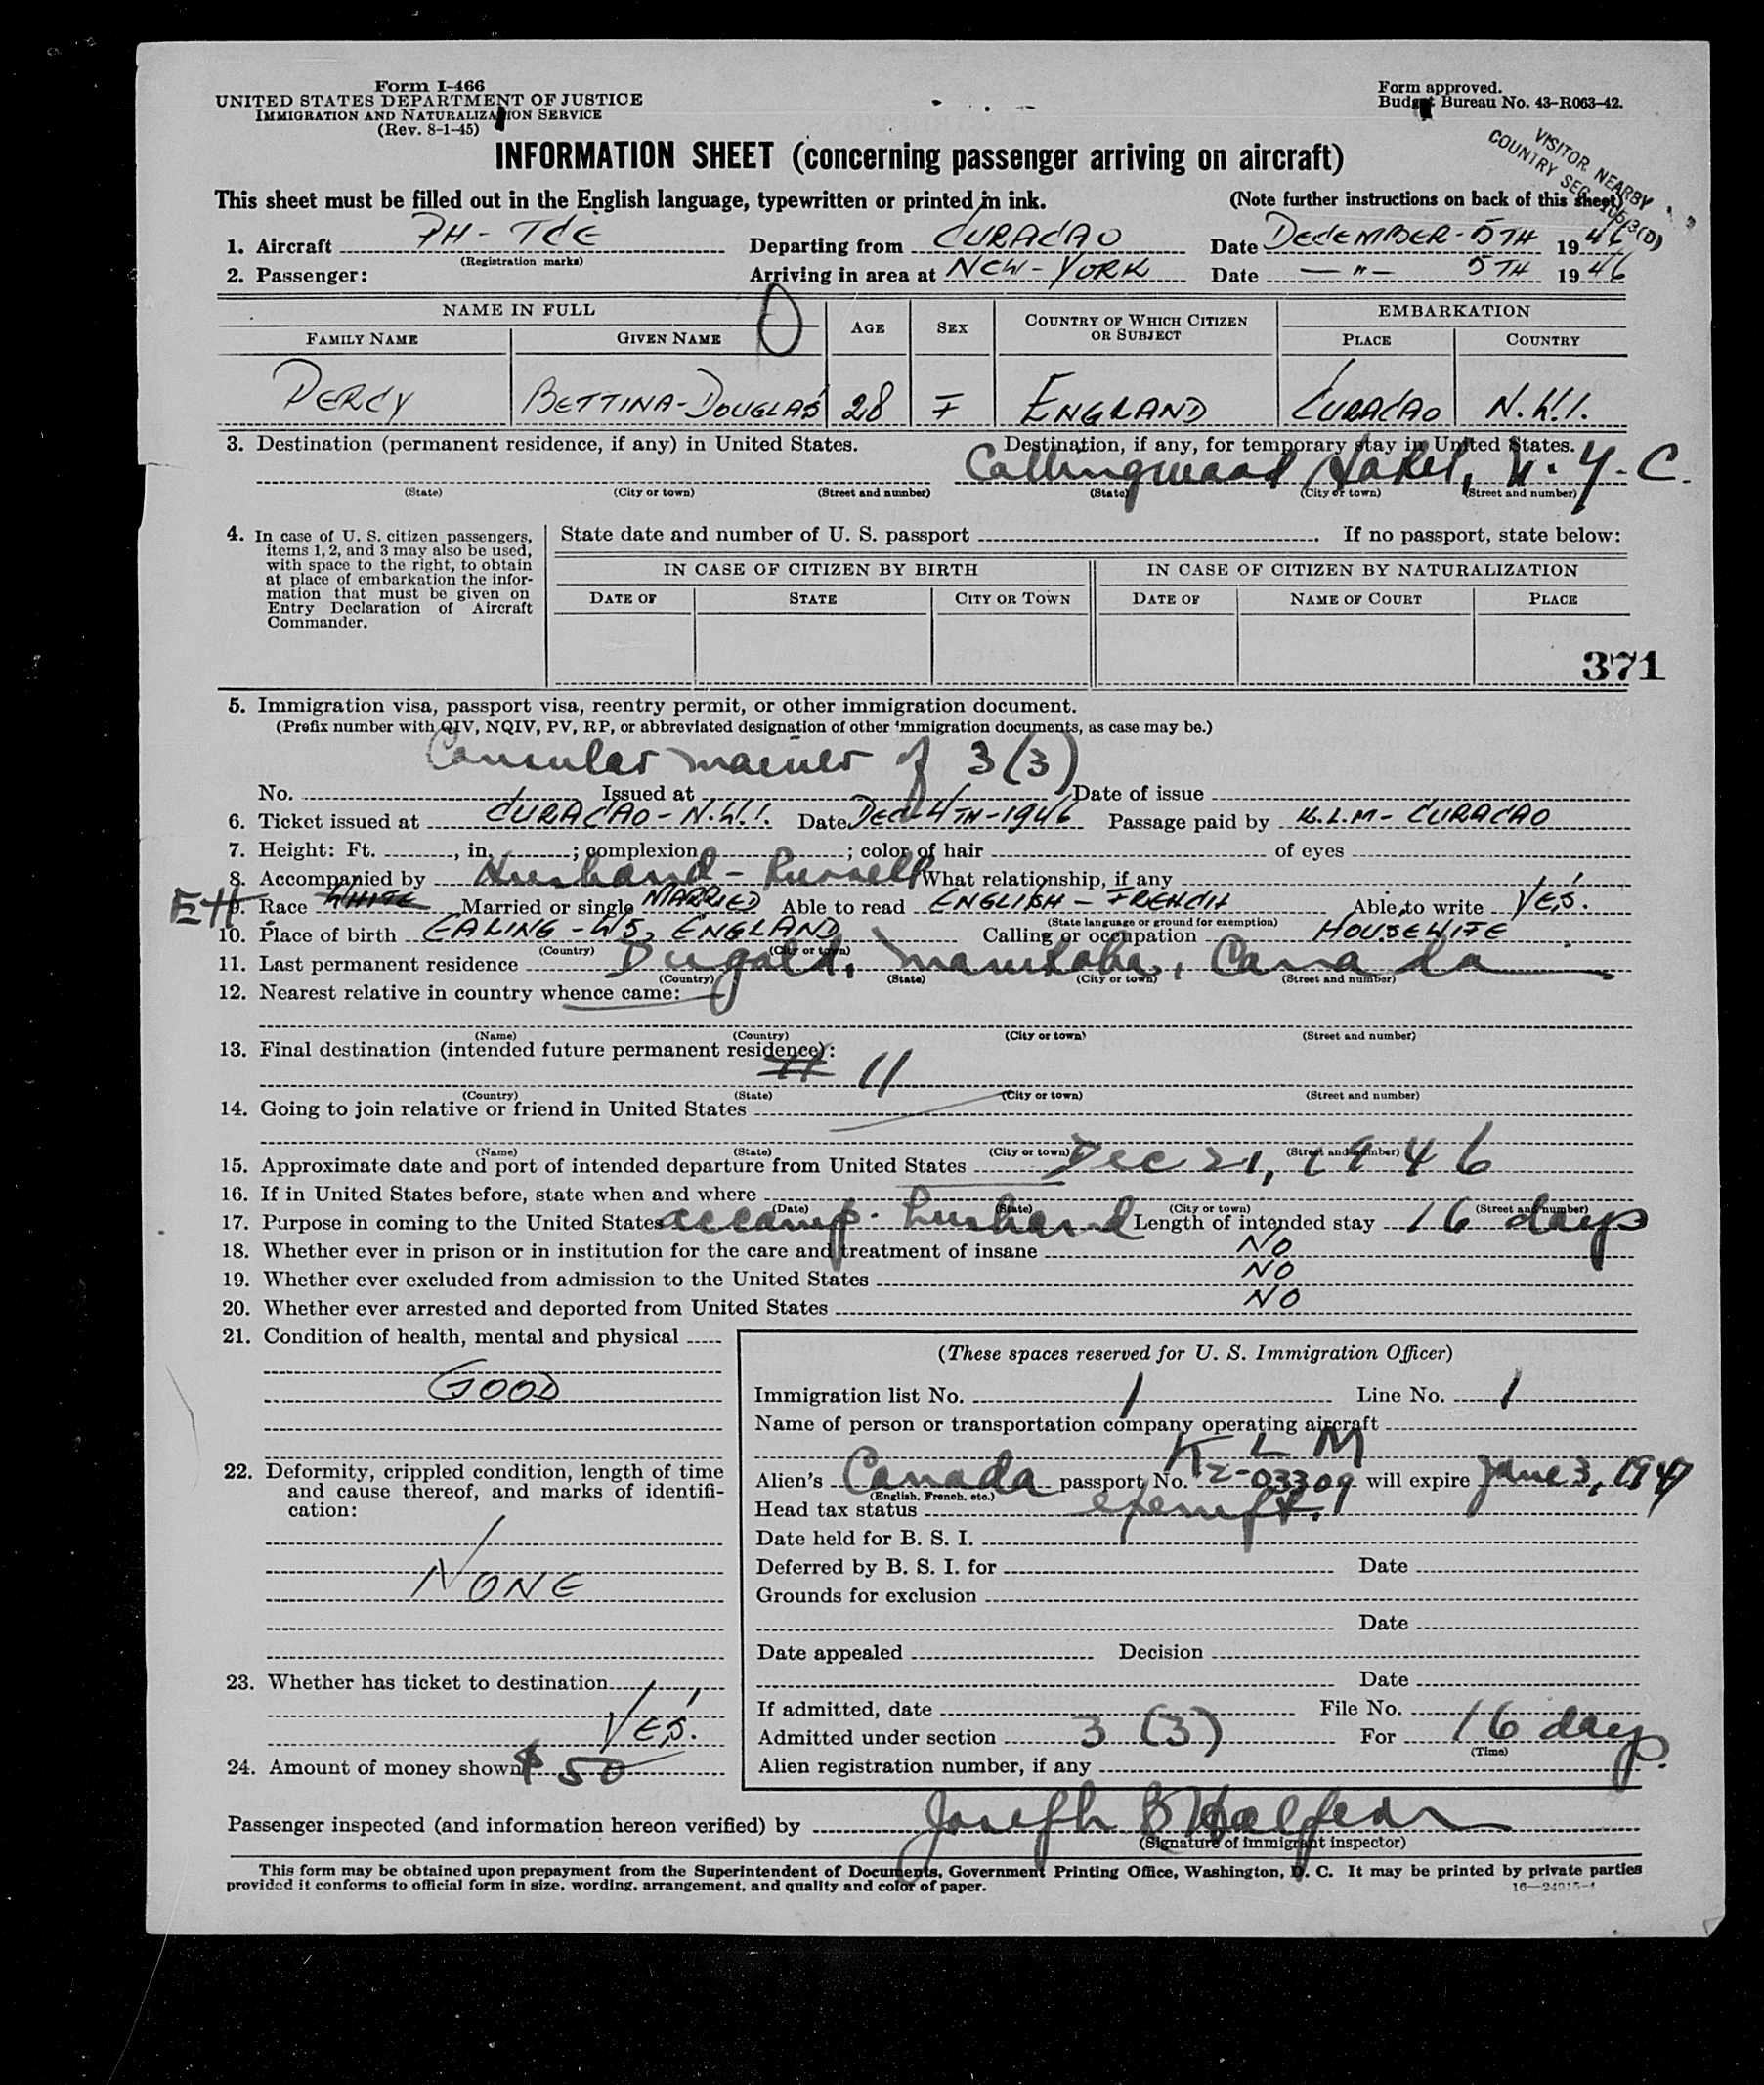 Form I-466
UNITED STATES DEPARTMENT OF JUSTICE
IMMIGRATION AND NATURALIZATION SERVICE
(Rev. 8-1-45)
Form approved.
Budget Bureau No. 43-R063-42.
VISITOR NEARBY
COUNTRY SEC.
INFORMATION SHEET (concerning passenger arriving on aircraft)
This sheet must be filled out in the English language, typewritten or printed in ink. (Note further instructions on back of this sheet)
1. Aircraft PH-TCE Departing from CURACAO Date DECEMBER-5TH 1946
(Registration marks)
2. Passenger: Arriving in area at NEW-YORK Date —"— 5TH 1946
NAME IN FULL AGE SEX COUNTRY OF WHICH CITIZEN OR SUBJECT EMBARKATION
FAMILY NAME GIVEN NAME PLACE COUNTRY
PERCY BETTINA-DOUGLAS 28 F ENGLAND CURACAO N.W.I.
3. Destination (permanent residence, if any) in United States. Destination, if any, for temporary stay in United States.
Collingwood Hotel, N.Y.C.
(State) (City or town) (Street and number) (State) (City or town) (Street and number)
4. In case of U. S. citizen passengers, items 1, 2, and 3 may also be used, with space to the right, to obtain at place of embarkation the information that must be given on Entry Declaration of Aircraft Commander.
State date and number of U. S. passport If no passport, state below:
IN CASE OF CITIZEN BY BIRTH IN CASE OF CITIZEN BY NATURALIZATION
DATE OF STATE CITY OR TOWN DATE OF NAME OF COURT PLACE
371
5. Immigration visa, passport visa, reentry permit, or other immigration document.
(Prefix number with QIV, NQIV, PV, RP, or abbreviated designation of other immigration documents, as case may be.)
Consular of 3(3)
No. Issued at Date of issue
6. Ticket issued at CURACAO-N.W.I. Date DEC-4TH-1946 Passage paid by K.L.M-CURACAO
7. Height: Ft. , in. ; complexion ; color of hair of eyes
8. Accompanied by Husband - Russell What relationship, if any
9. Race WHITE Married or single MARRIED Able to read ENGLISH-FRENCH Able to write YES.
(State language or ground for exemption)
10. Place of birth EALING-W5, ENGLAND Calling or occupation HOUSEWIFE
(Country) (City or town)
11. Last permanent residence Dugald, Manitoba, Canada
(Country) (State) (City or town) (Street and number)
12. Nearest relative in country whence came:
(Name) (Country) (City or town) (Street and number)
13. Final destination (intended future permanent residence):
# 11
(Country) (State) (City or town) (Street and number)
14. Going to join relative or friend in United States
(Name) (State) (City or town) (Street and number)
15. Approximate date and port of intended departure from United States Dec 21, 1946
16. If in United States before, state when and where
(Date) (State) (City or town) (Street and number)
17. Purpose in coming to the United States accomp. husband Length of intended stay 16 days
18. Whether ever in prison or in institution for the care and treatment of insane NO
19. Whether ever excluded from admission to the United States NO
20. Whether ever arrested and deported from United States NO
21. Condition of health, mental and physical
GOOD
22. Deformity, crippled condition, length of time and cause thereof, and marks of identification:
NONE
23. Whether has ticket to destination
YES.
24. Amount of money shown $50
(These spaces reserved for U. S. Immigration Officer)
Immigration list No. 1 Line No. 1
Name of person or transportation company operating aircraft
KLM
Alien's Canada passport No. 12-03309 will expire June 3, 1947
(English, French, etc.)
Head tax status exempt.
Date held for B. S. I.
Deferred by B. S. I. for Date
Grounds for exclusion
Date
Date appealed Decision
Date
If admitted, date File No.
Admitted under section 3 (3) For 16 days
(Time)
Alien registration number, if any
Passenger inspected (and information hereon verified) by Joseph B Halpern
(Signature of immigrant inspector)
This form may be obtained upon prepayment from the Superintendent of Documents, Government Printing Office, Washington, D. C. It may be printed by private parties
provided it conforms to official form in size, wording, arrangement, and quality and color of paper.